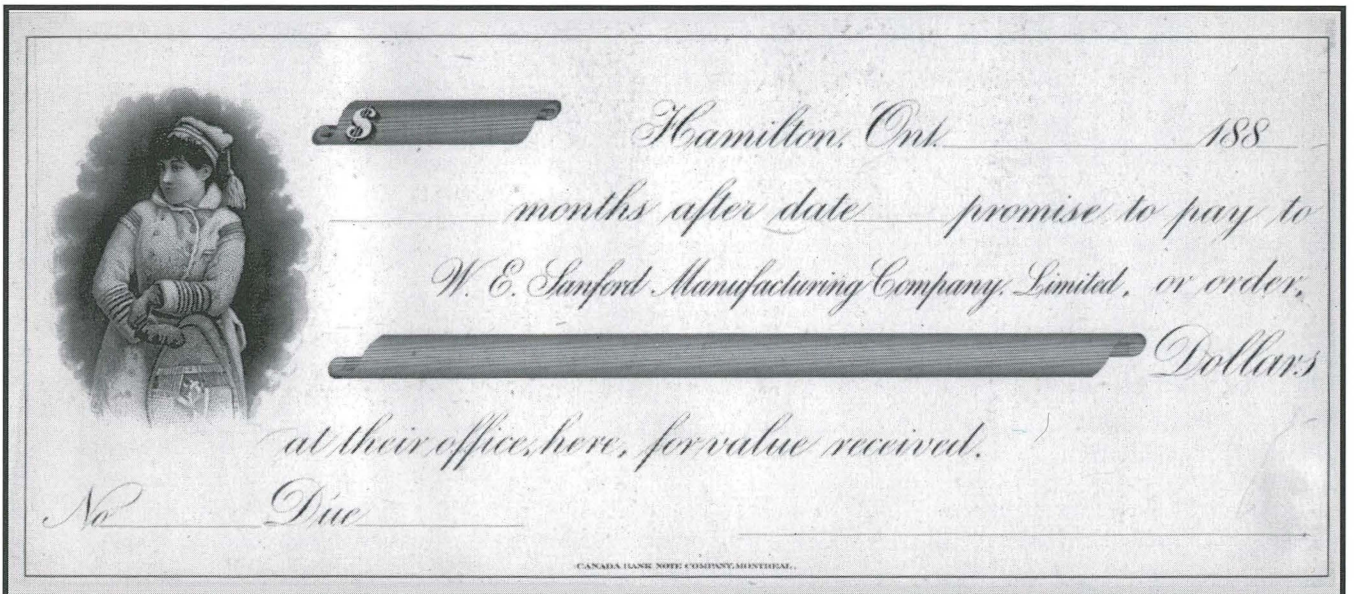 $ Hamilton, Ont. 188
months after date promise to pay to
W. E. Sanford Manufacturing Company, Limited, or order,
Dollars
at their office, here, for value received.
No Due
CANADA BANK NOTE COMPANY, MONTREAL.